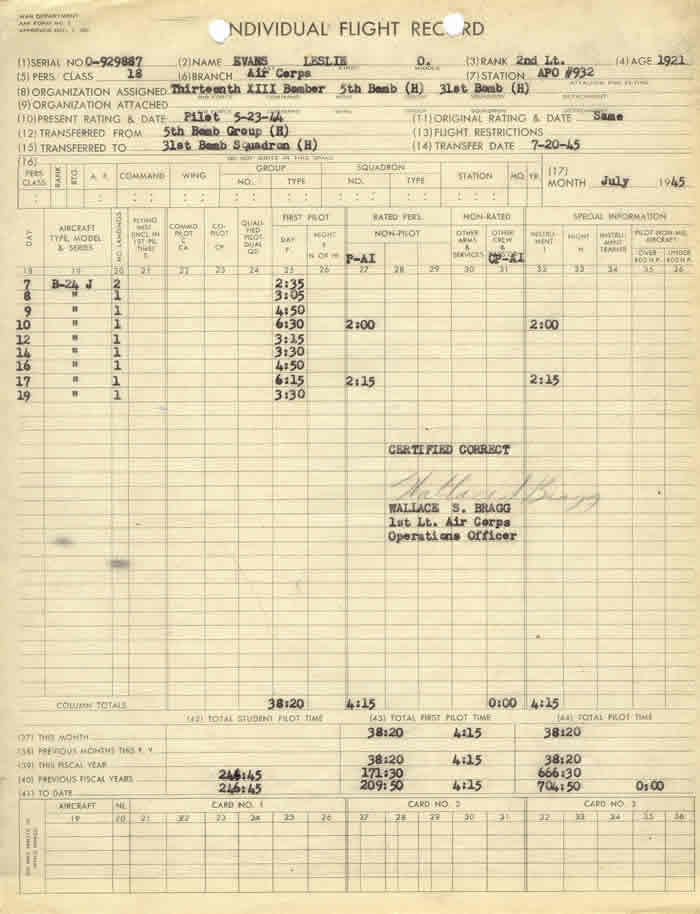 WAR DEPARTMENT
AAF FORM NO. 5
NDIVIDUAL FLIGHT REC RD
(1) SERIAL NO O-929887 (2) NAME EVANS LESLIE O. (3) RANK 2nd Lt. (4) AGE 1921
(5) PERS. CLASS 18 (6) BRANCH Air Corps (7) STATION APO #932
(8) ORGANIZATION ASSIGNED Thirteenth XIII Bomber 5th Bomb (H) 31st Bomb (H)
(9) ORGANIZATION ATTACHED
(10) PRESENT RATING & DATE Pilot 5-23-44 (11) ORIGINAL RATING & DATE Same
(12) TRANSFERRED FROM 5th Bomb Group (H) (13) FLIGHT RESTRICTIONS
(15) TRANSFERRED TO 31st Bomb Squadron (H) (14) TRANSFER DATE 7-20-45
DO NOT WRITE IN THIS SPACE
(16) PERS CLASS RANK RTG. A. F. COMMAND WING GROUP NO. TYPE SQUADRON NO. TYPE STATION MO. YR. (17) MONTH July 1945
DAY AIRCRAFT TYPE, MODEL & SERIES NO. LANDINGS FLYING INST. (INCL. IN 1ST PIL. TIME) S COMMD. PILOT C CA CO-PILOT CP QUALI-FIED PILOT DUAL QD FIRST PILOT DAY P NIGHT RATED PERS. NON-PILOT P-AI NON-RATED OTHER ARMS & SERVICES OTHER CREW & CP-AI SPECIAL INFORMATION INSTRU-MENT I NIGHT N INSTRU-MENT TRAINER PILOT NON-MIL. AIRCRAFT OVER 400 H.P. UNDER 400 H.P.
18 19 20 21 22 23 24 25 26 27 28 29 30 31 32 33 34 35 36
7 B-24 J 2 2:35
8 " 1 3:05
9 " 1 4:50
10 " 1 6:30 2:00 2:00
12 " 1 3:15
14 " 1 3:30
16 " 1 4:50
17 " 1 6:15 2:15 2:15
19 " 1 3:30
CERTIFIED CORRECT
Wallace S Bragg
WALLACE S. BRAGG
1st Lt. Air Corps
Operations Officer
COLUMN TOTALS 38:20 4:15 0:00 4:15
(42) TOTAL STUDENT PILOT TIME (43) TOTAL FIRST PILOT TIME (44) TOTAL PILOT TIME
(37) THIS MONTH 38:20 4:15 38:20
(38) PREVIOUS MONTHS THIS F. Y.
(39) THIS FISCAL YEAR 38:20 38:20
(40) PREVIOUS FISCAL YEARS 246:45 171:30 666:30
(41) TO DATE 246:45 209:50 4:15 704:50 0:00
AIRCRAFT NL CARD NO. 1 CARD NO. 2 CARD NO. 3
19 20 21 22 23 24 25 26 27 28 29 30 31 32 33 34 35 36